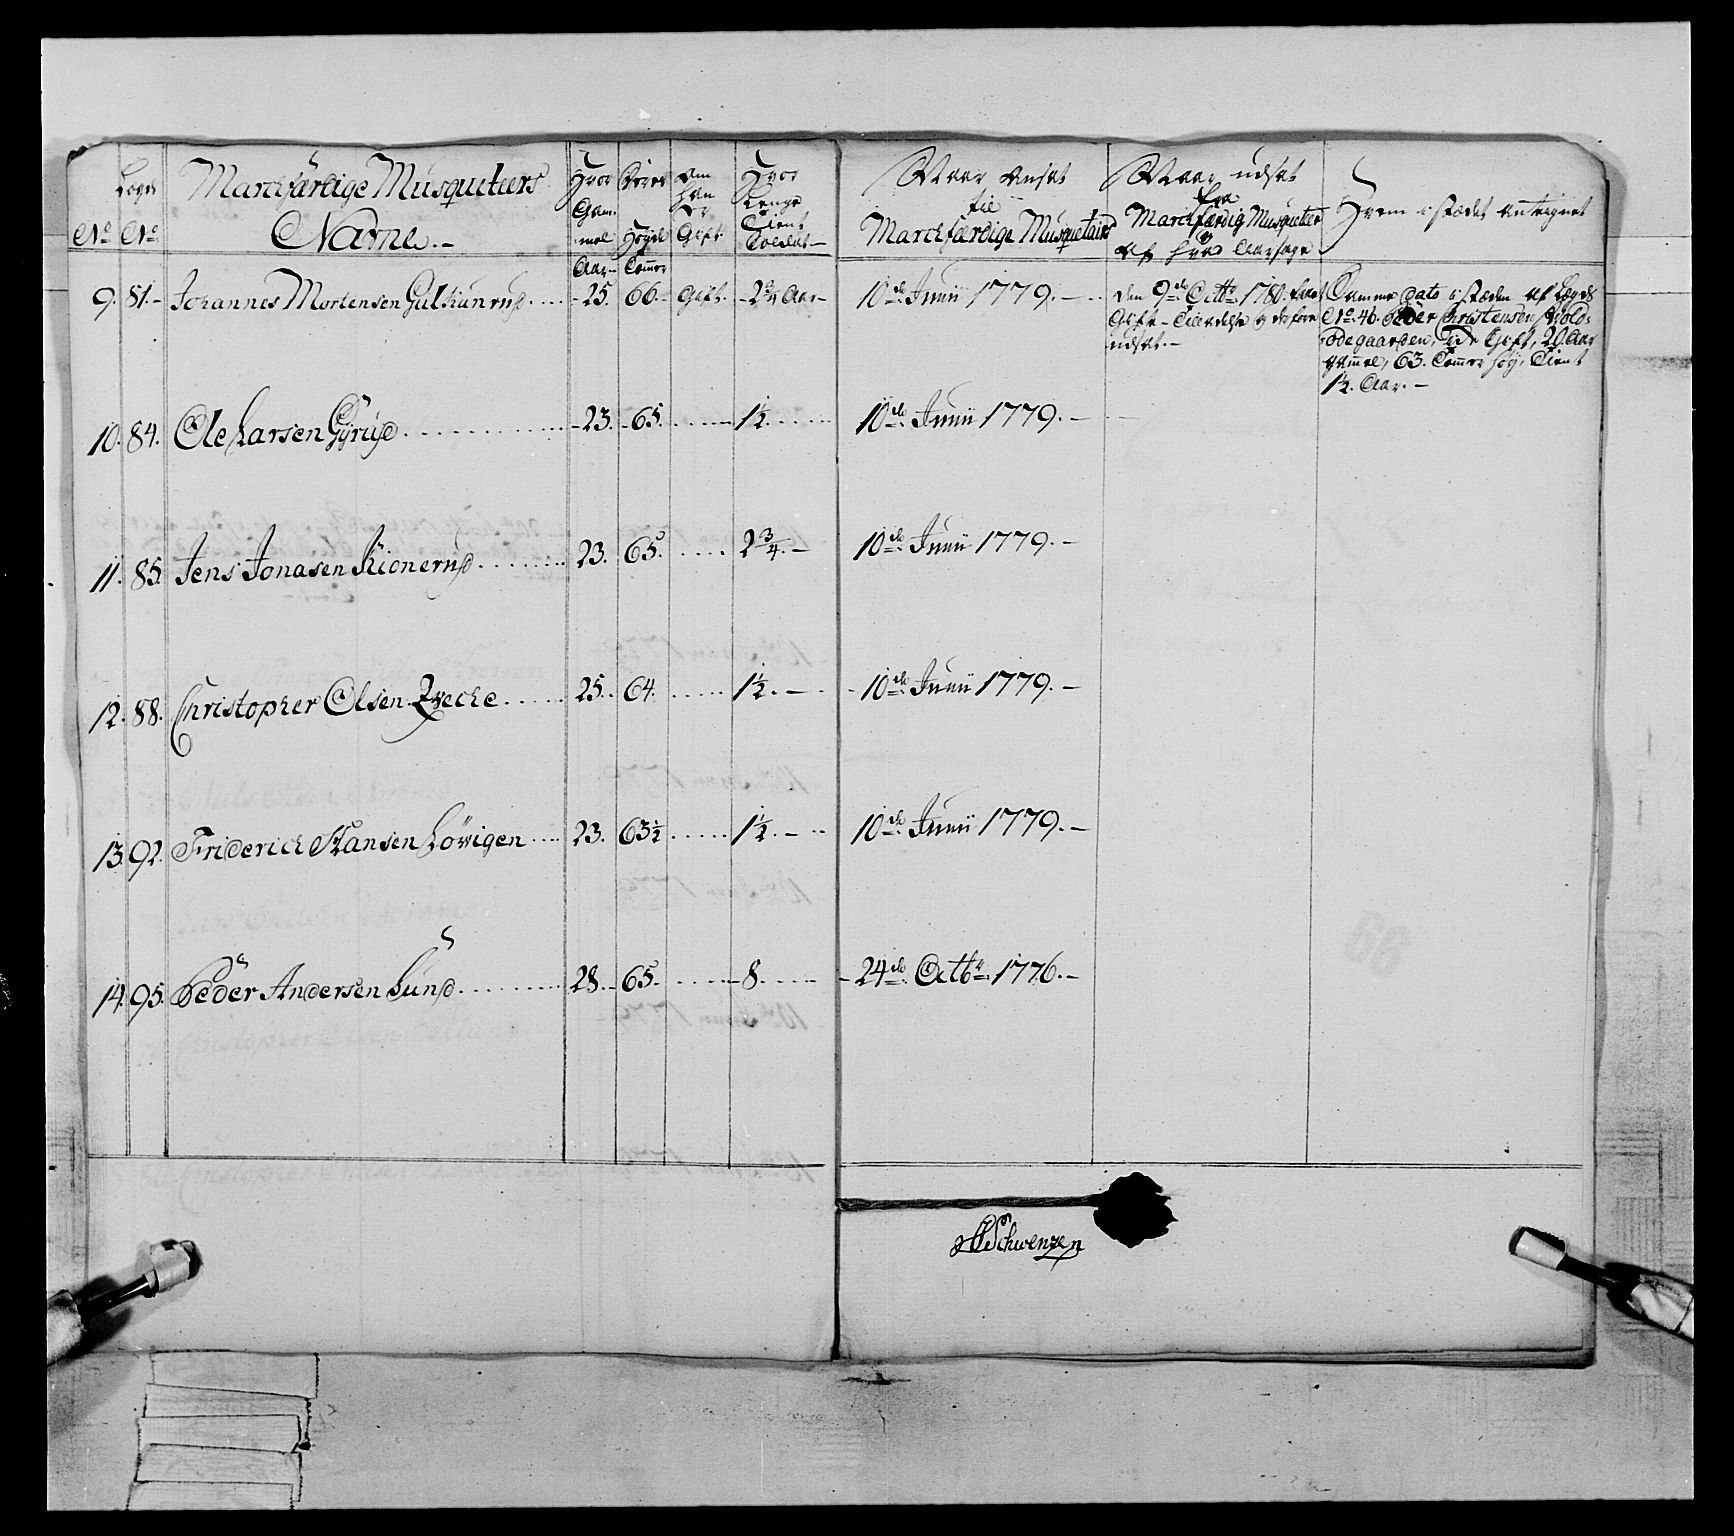 No Legd No Marchfærdige Musquetiers Navne.- Hvor Gam= mel Deres Høyde Om han Er Gift Hvor Lenge Tient Soldat- Naar Ansat til Marchfærdige Musquetairs Naar udsat fra Marchfærdig Musquetier og Af hvad Aarsage Hvem i stædet anteignet
Aar- Tommer
9. 81.- Johannes Mortensen Gulhunrud .... -25. 66.- Gift. -2¾ Aar- 10de Junii 1779.- Den 9de Octbr 1780. faaet
udsat.-
Damme Dato i stæden af Legds
No. 46. Peder Christensen Hold=
=ødegaarden, Gift, 20. Aar
gammel, 63. Tommer høy, Tient
1½. Aar.-
10. 84. Ole Larsen Gÿrud ........ -23. -65. ..... -1½ ..... 10de Junii 1779.-
11. 85. Jens Jonasen Kionerud ....... 23. 65. ..... 2¾.- 10de Junii 1779.-
12. 88. Christopher Olsen Qveche ..... 25. 64. ..... 1½.- - 10de Junii 1779.-
13. 92. Friderich Hansen Løvigen .... 23. 63½ ..... 1½.- 10de Junii 1779.-
14. 95. Peder Andersen Lund ........ 28.- 65. ..... -8..... -24de Octbr 1776.-
Schwenzen